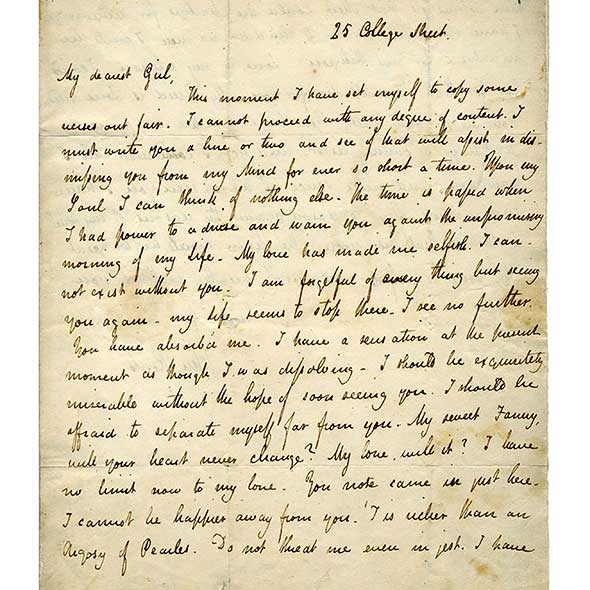 25 College Street.
My dearest Girl,
This moment I have set myself to copy some
verses out fair. I cannot proceed with any degree of content. I
must write you a line or two and see if that will assist in dis-
missing you from my Mind for ever so short a time. Upon my
Soul I can think of nothing else. The time is passed when
I had power to advise and warn you against the unpromising
morning of my Life - My love has made me selfish. I can-
not exist without you - I am forgetful of every thing but seeing
you again - my Life seems to stop there. I see no further.
You have absorb'd me. I have a sensation at the present
moment as though I was dissolving - I should be exquisitely
miserable without the hope of soon seeing you. I should be
affraid to separate myself far from you. My sweet Fanny,
will your heart never change? My love, will it? I have
no limit now to my love - You note came in just here -
I cannot be happier away from you. 'T is richer than an
Argosy of Pearles. Do not threat me even in jest. I have